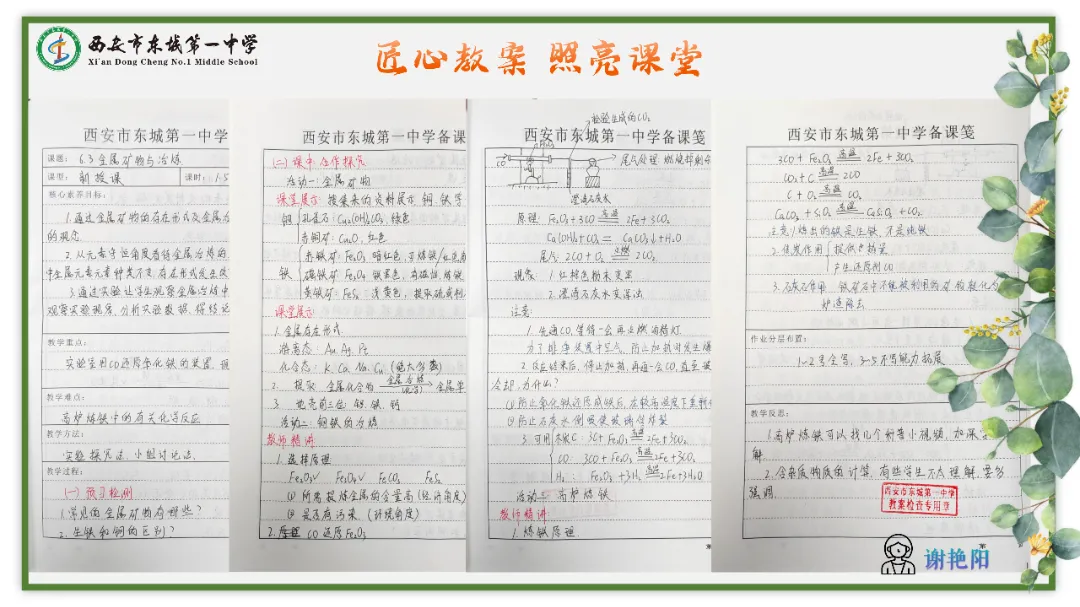 西安市东城第一中学
Xi'an Dong Cheng No.1 Middle School
匠心教案 照亮课堂
西安市东城第一中学
课题: 6.3金属矿物与冶炼
课型: 新授课
课时: 1-5
核心素养目标:
1.通过金属矿物的存在形式及金属冶
的观念.
2.从元素守恒角度看待金属冶炼的
中金属元素元素种类不变,存在形式发生改
3.通过实验让学生观察金属冶炼中
观察实验现象,分析实验数据,得结论
教学重点:
实验室用CO还原氧化铁的装置、现
教学难点:
高炉炼铁中的有关化学反应
教学方法:
实验探究法,小组讨论法.
教学过程:
(一) 预习检测
1.常见的金属矿物有哪些?
2.生铁和钢的区别?
西安市东城第一中学备课
(二) 课中合作探究
活动一:金属矿物
课堂展示:
铜 孔雀石: Cu₂(OH)₂CO₃, 绿色
赤铜矿: Cu₂O, 红色
铁 赤铁矿: Fe₂O₃ 暗红色,
磁铁矿: Fe₃O₄ 铁黑色,有磁性,
黄铁矿: FeS₂
课堂展示:
1.金属存在形式
游离态: Au Ag, Pt
化合态: K. Ca. Na. Cu (绝大多数)
2. 提取. 金属化合物 金属冶炼 金属单
3. 地壳前三位: 铝. 铁. 钙
活动二: 钢铁的冶炼
教师精讲
1.选择原理
Fe₂O₃√ Fe₃O₄√ FeCO₃ FeS₂
① 所需提炼金属的含量高(经济角度)
② 是否有污染 (环境角度)
2.原理 CO还原Fe₂O₃
检验生成的CO₂
西安市东城第一中学备课笺
CO
尾气处理
澄清石灰水
原理: Fe₂O₃+3CO 高温 2Fe+3CO₂
Ca(OH)₂+CO₂ = CaCO₃↓+H₂O
尾气: 2CO+O₂ 点燃 2CO₂
现象: 1.红棕色粉末变黑
2.澄清石灰水变浑浊
注意:
1.先通CO,等待一会再点燃酒精灯
为了排净装置中空气,防止加热时发生爆
2.反应结束后,停止加热,再通一会CO,直至玻
冷却,为什么?
① 防止氧化铁还原成铁后,在较高温度下重新
② 防止石灰水倒吸使玻璃管炸裂
3.可用木炭C 3C+2Fe₂O₃ 高温 4Fe+3CO₂
CO: 3CO+Fe₂O₃ 高温 2Fe+3CO₂
H₂: Fe₂O₃+3H₂ 高温 2Fe+3H₂O
活动三: 高炉炼铁
教师精讲:
1.炼铁原理
西安市东城第一中学备课笺
3CO+Fe₂O₃ 高温 2Fe+3CO₂
CO₂+C 高温 2CO
C+O₂ 高温 CO₂
CaCO₃+SiO₂ 高温 CaSiO₃+CO₂
注意:炼出的铁是生铁,不是纯铁
2.焦炭作用 提供热量
产生还原剂CO
3.石灰石作用
炉渣除去
作业分层布置:
1-2号全写, 3-5不同能力拓展
教学反思:
1.高炉炼铁可以找几个科普小视频,加深
解
2.含杂质物质的计算,有些学生不太理解,要多
强调.
西安市东城第一中学
教案检查专用章
谢艳阳